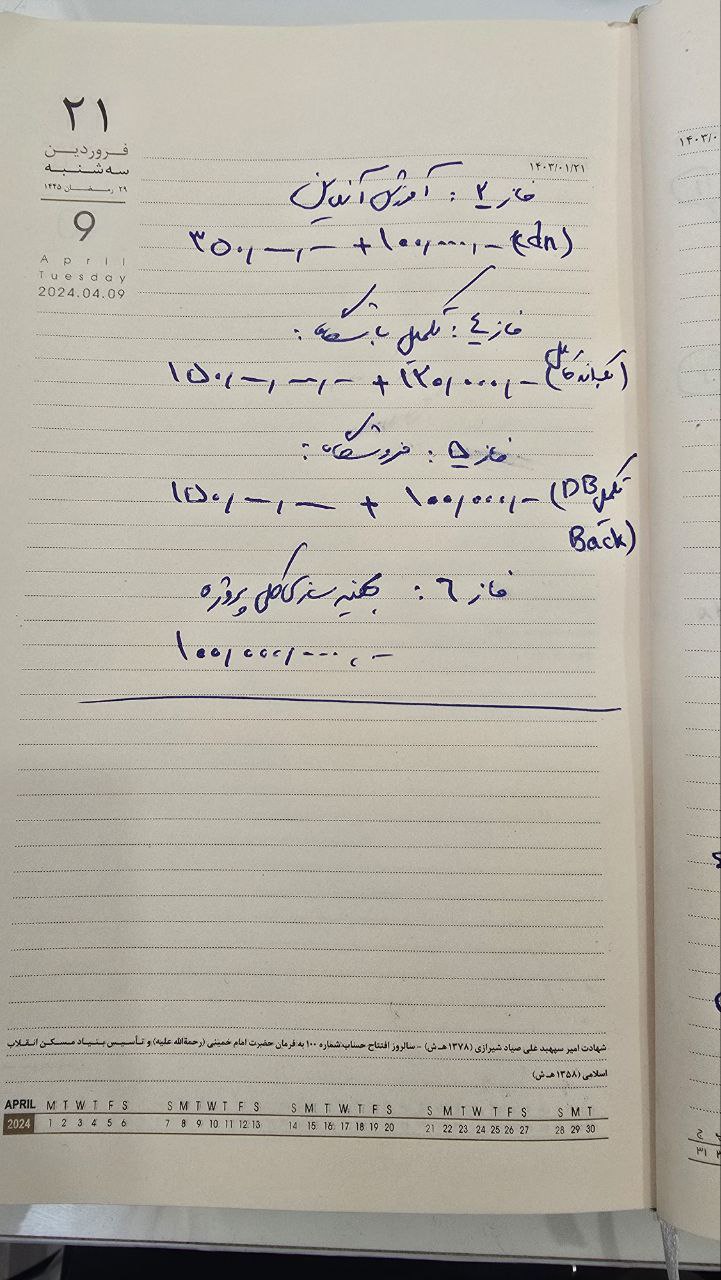 ۲۱
فروردین
سه شنبه
۲۹ رمضان ۱۴۴۵
9
April
Tuesday
2024.04.09
۱۴۰۳/۰۱/۲۱
۱۴۰۳/۰
فاز ۳ : آموزش آنلاین
۳۵۰,۰۰۰,۰۰۰ + ۱۰۰,۰۰۰,۰۰۰ (cdn)
فاز ۴ : تکمیل باشگاه :
فاز ۵ : فروشگاه :
۱۵۰,۰۰۰,۰۰۰ + ۱۰۰,۰۰۰,۰۰۰ (تکمیل DB
Back)
فاز ۶ : بهینه سازی کلی پروژه
۱۰۰,۰۰۰,۰۰۰
شهادت امیر سپهبد علی صیاد شیرازی (۱۳۷۸ هـ ش) - سالروز افتتاح حساب شماره ۱۰۰ به فرمان حضرت امام خمینی (رحمةالله علیه) و تأسیس بنیاد مسکن انقلاب
اسلامی (۱۳۵۸ هـ ش)
APRIL M T W T F S S M T W T F S S M T W T F S S M T W T F S S M T
2024 1 2 3 4 5 6 7 8 9 10 11 12 13 14 15 16 17 18 19 20 21 22 23 24 25 26 27 28 29 30